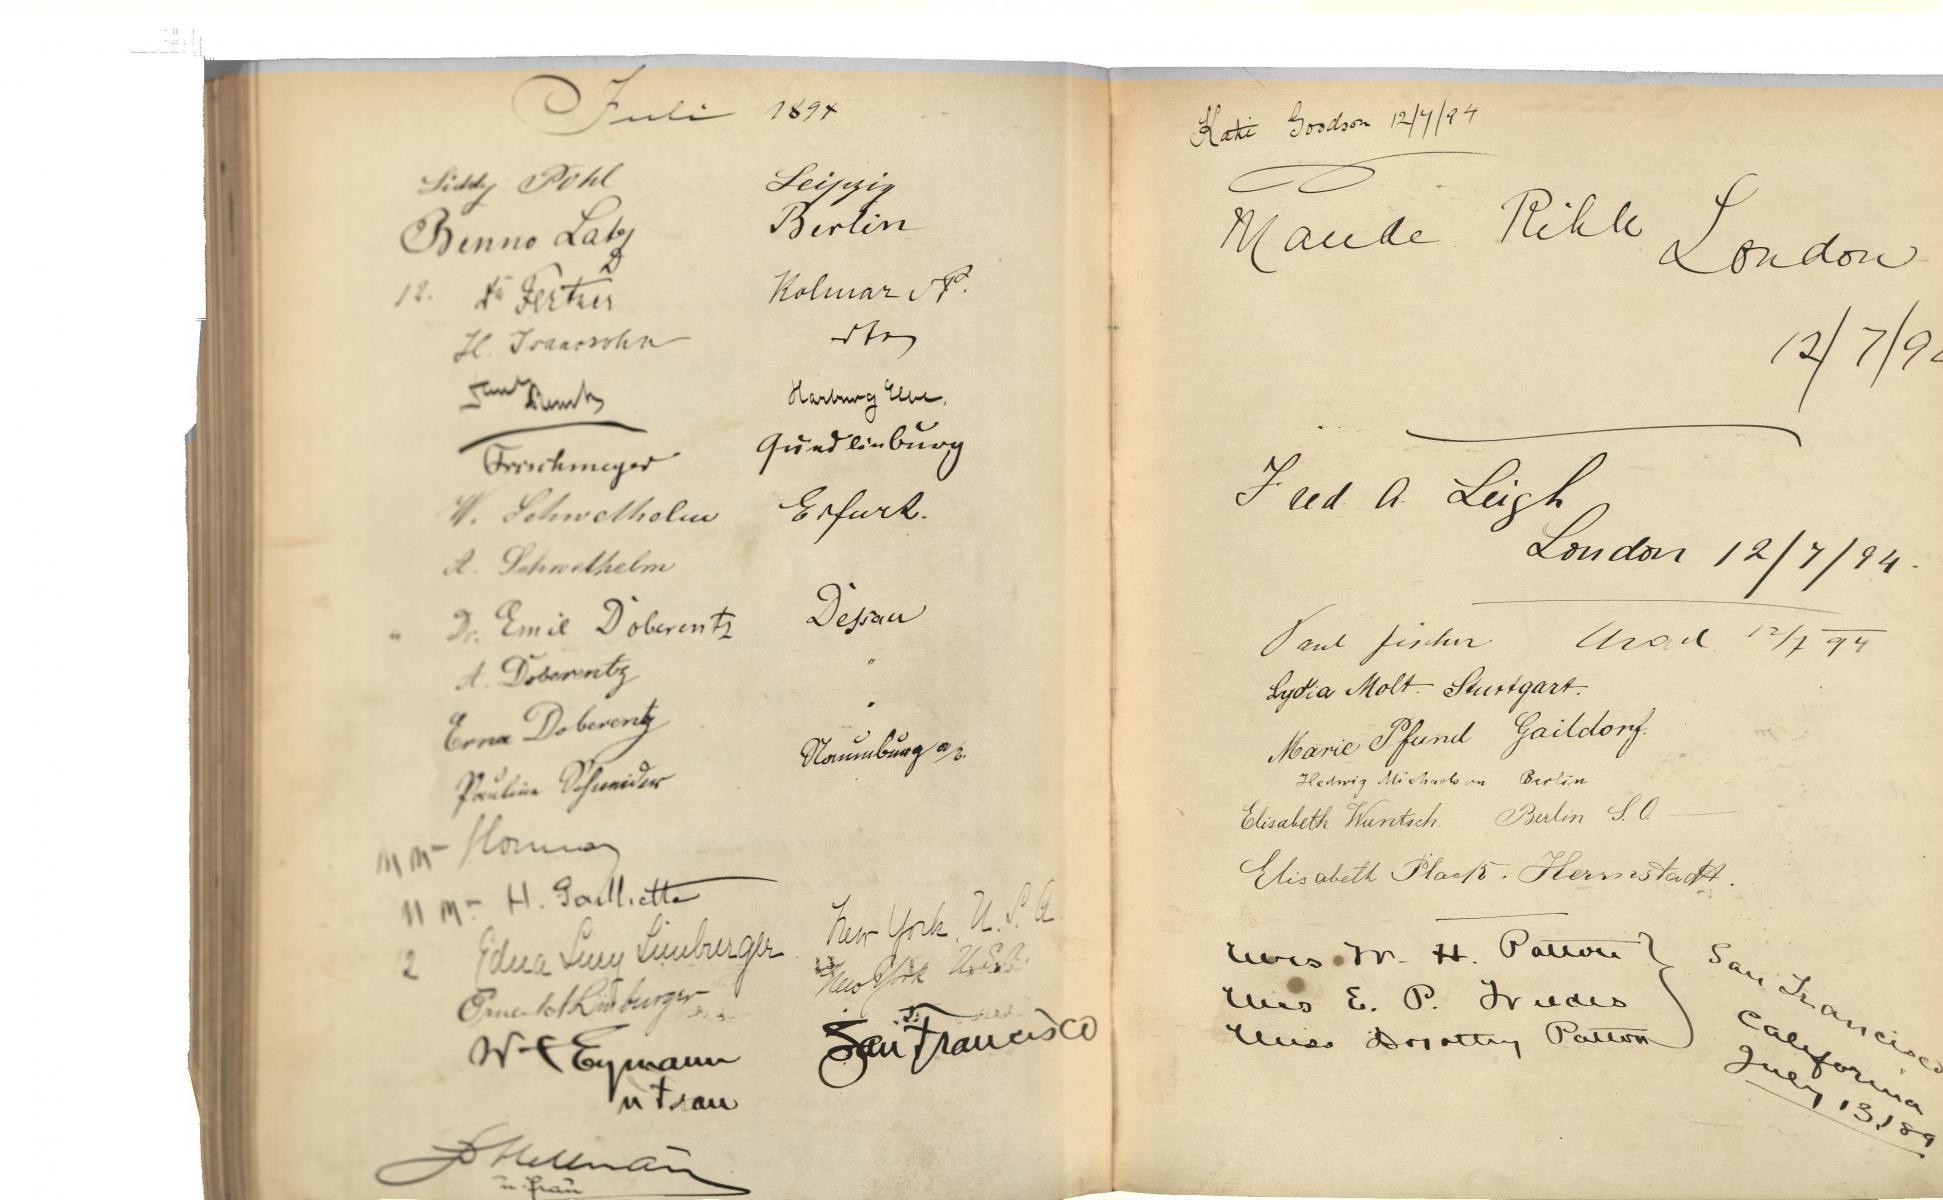 Juli 1894
Liddy Pohl Leipzig
Benno Laty Berlin
12. Kolmar i/P.
H. Isaacsohn dto
Harburg Elbe.
Frischmeyer Quedlinburg
W. Schwethelm Erfurt.
A. Schwethelm
" Dr. Emil Doberentz Dessau
A. Doberentz "
Erna Doberentz "
Pauline Schneider Naumburg a/S.
H.
12 Edna Lucy Limburger New York, U.S.A.
Limburger New York U.S.A.
Wm Eymann San Francisco
u Frau
Hellman
u. Frau
Katie Goodson 12/7/94
Maude Rihll London
12/7/94
Fred. A. Leigh
London 12/7/94.
Paul Fischer Arad 12/7 94
Lydia Molt. Stuttgart.
Marie Pfund Gaildorf.
Hedwig Michaelson Berlin
Elisabeth Wuntsch. Berlin S.O.
Elisabeth Plack. Hermstadt.
Mrs W. H. Patton
Mrs E. P.
Miss Dorothy Patton
San Francisco
California
July 13, 189